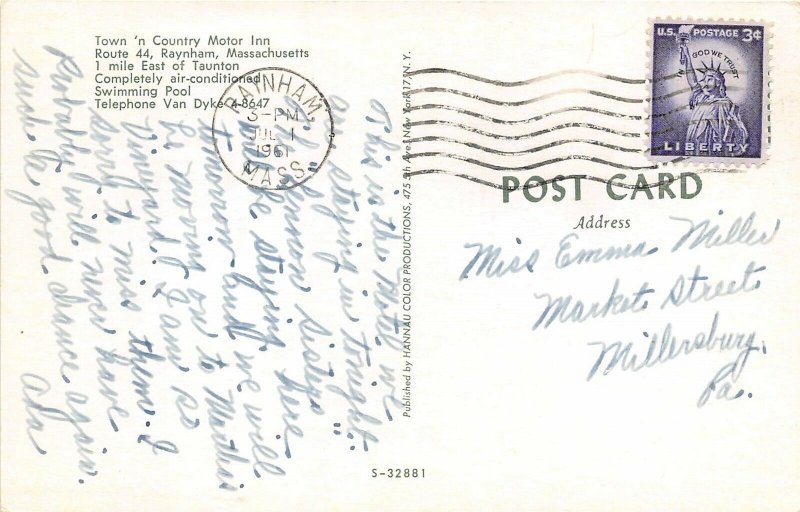 Town 'n Country Motor Inn
Route 44, Raynham, Massachusetts
1 mile East of Taunton
Completely air-conditioned
Swimming Pool
Telephone Van Dyke 4-8647
RAYNHAM,
3-PM
JUL 1
1961
MASS.
U.S. POSTAGE 3¢
IN GOD WE TRUST
LIBERTY
POST CARD
Address
Miss Emma Miller
Market Street
Millersburg,
Pa.
This is the Motel we
are staying in tonight.
Lennon sisters
be staying here
tomorrow and we will
be moving on to Marthas
Vineyard. I am so
sorry to miss them. I
Probably will never have
such a good chance again.
Ada
Published by HANNAU COLOR PRODUCTIONS, 475 5th Ave., New York 17, N.Y.
S-32881